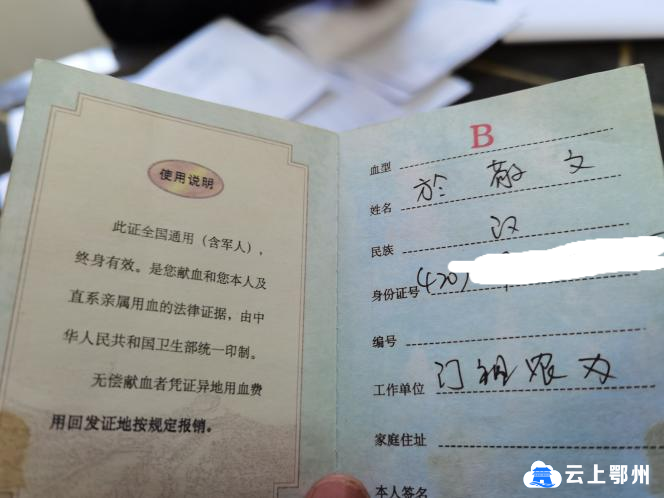 使用说明
此证全国通用（含军人），
终身有效。是您献血和您本人及
直系亲属用血的法律证据，由中
华人民共和国卫生部统一印制。
无偿献血者凭证异地用血费
用回发证地按规定报销。
血型 B
姓名 於敬文
民族 汉
身份证号 420
编号
工作单位 门祖农办
家庭住址
本人签名
云上鄂州